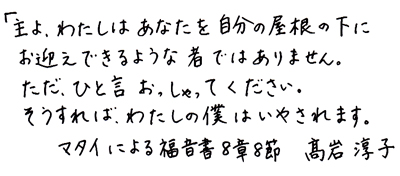 「主よ、わたしは あなたを 自分の屋根の下に
お迎えできるような 者ではありません。
ただ、ひと言 おっしゃってください。
そうすれば、わたしの僕はいやされます。
マタイによる福音書8章8節 髙岩 淳子